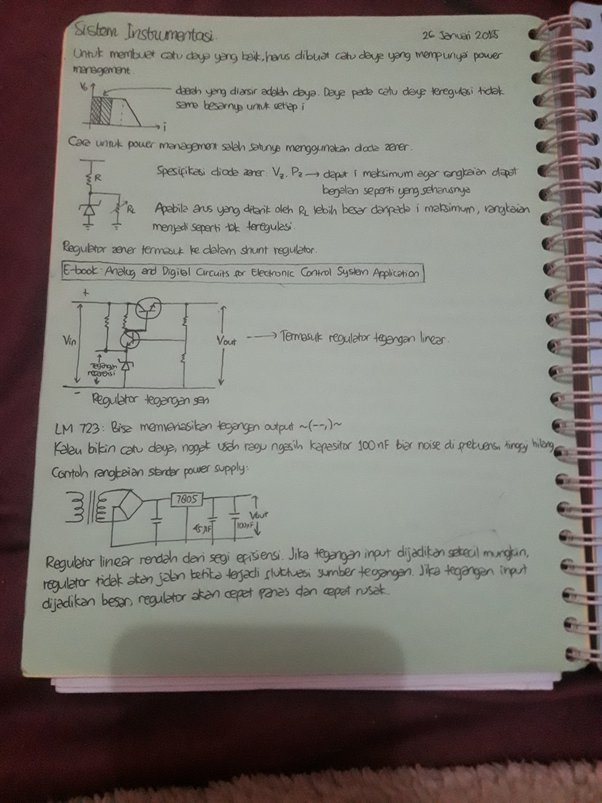 Sistem Instrumentasi
26 Januari 2015
Untuk membuat catu daya yang baik, harus dibuat catu daya yang mempunyai power
management
Vo
daerah yang diarsir adalah daya. Daya pada catu daya teregulasi tidak
sama besarnya untuk setiap i
i
Cara untuk power management salah satunya menggunakan diode zener.
R
Spesifikasi diode zener: Vz, Pz → dapat i maksimum agar rangkaian dapat
berjalan seperti yang seharusnya
RL
Apabila arus yang ditarik oleh RL lebih besar daripada i maksimum, rangkaian
menjadi seperti tak teregulasi.
Regulator zener termasuk ke dalam shunt regulator.
E-book: Analog and Digital Circuits for Electronic Control System Application
+
Vin
Vout
→ Termasuk regulator tegangan linear.
Tegangan
referensi
-
Regulator tegangan seri
LM 723: Bisa memvariasikan tegangan output ~(--,)~
Kalau bikin catu daya, nggak usah ragu ngasih kapasitor 100nF biar noise di frekuensi tinggi hilang
Contoh rangkaian standar power supply:
7805
Vout
100nF
Regulator linear rendah dari segi efisiensi. Jika tegangan input dijadikan sekecil mungkin,
regulator tidak akan jalan ketika terjadi fluktuasi sumber tegangan. Jika tegangan input
dijadikan besar, regulator akan cepat panas dan cepat rusak.